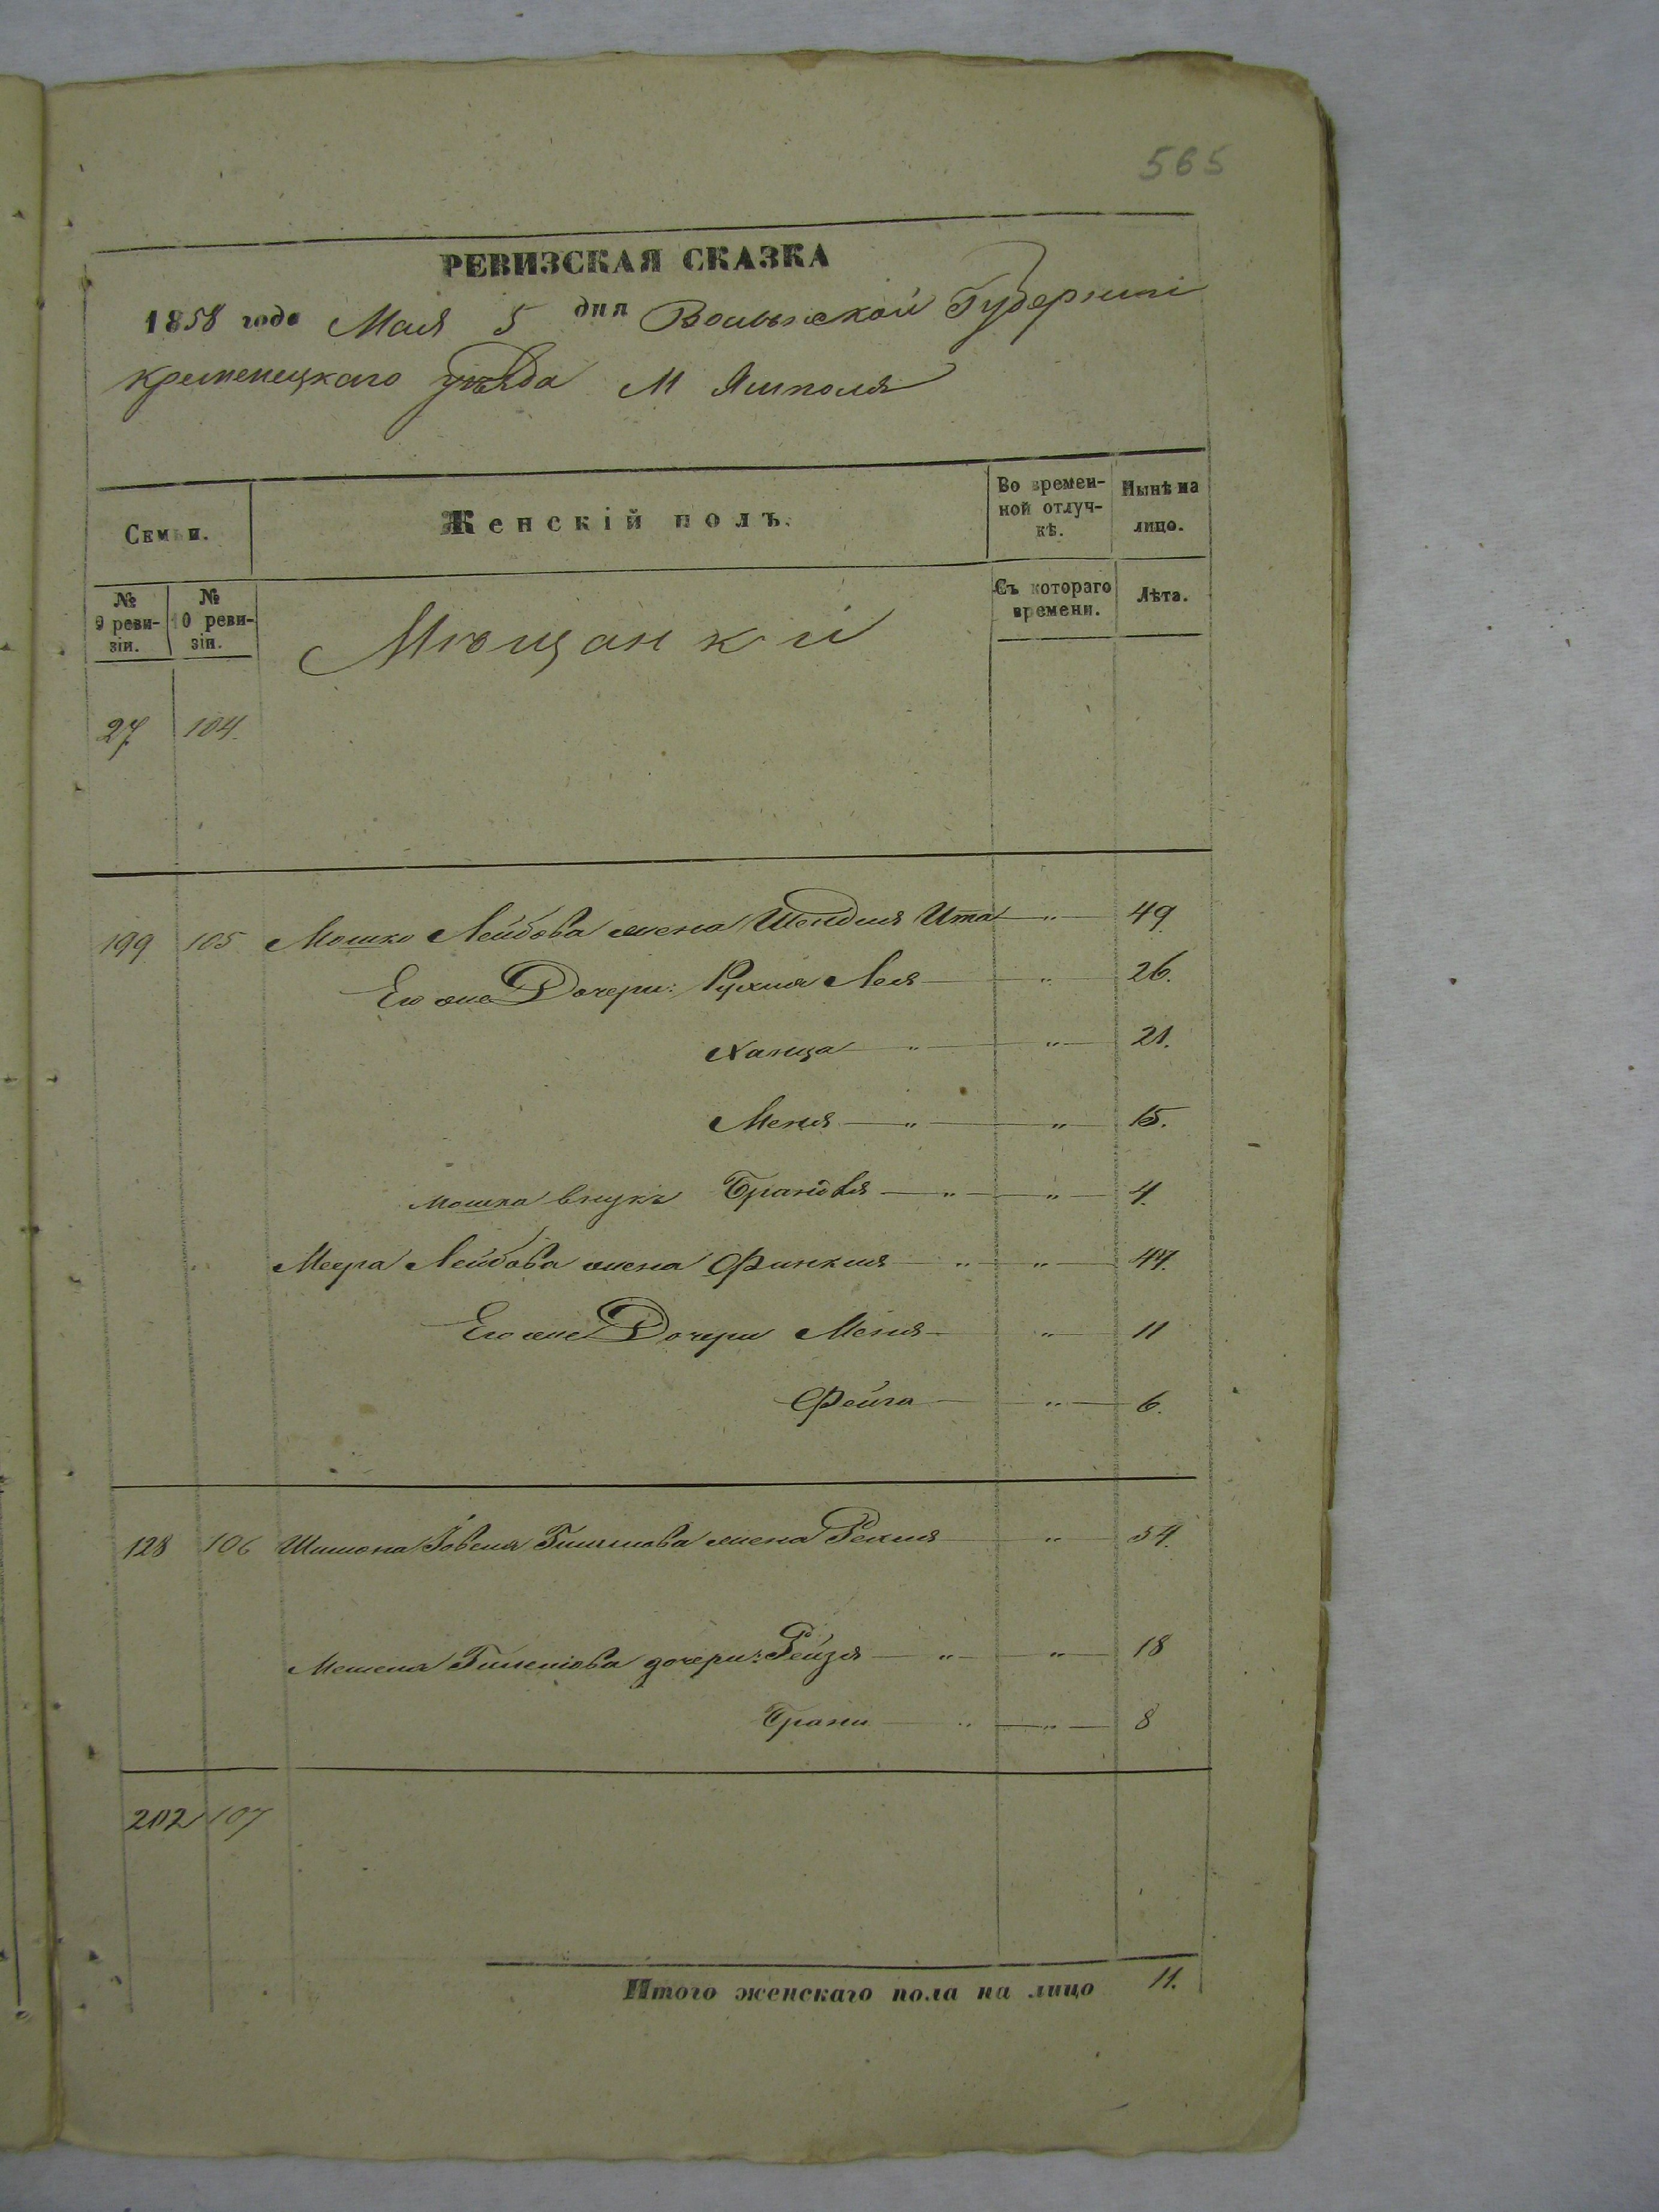 565
РЕВИЗСКАЯ СКАЗКА
1858 года Мая 5 дня Волынской Губерніи
кременецкаго уѣзда М Ямполя
Семьи.
Женскій полъ.
Во времен-
ной отлуч-
кѣ.
Нынѣ на
лицо.
№
9 реви-
зіи.
№
10 реви-
зіи.
Мѣщанки
Съ котораго
времени.
Лѣта.
27 104.
199 105 Мошко Лейбова жена Шендля Ита — " — 49
Его же Дочери: Рухля Лея — " — 26.
Ханца — " — " — 21.
Меня — " — " — 15.
Мошка внукъ Брандля — " — " — 4.
Меера Лейбова жена Финкля — " — " — 44.
Его же Дочери Меня — " — 11
Фейга — " — 6.
128 106 Шимона жена Рехля — " — 34.
дочери: Рейзя — " — " — 18
Брани — " — " — 8
202 107
Итого женскаго пола на лицо 11.